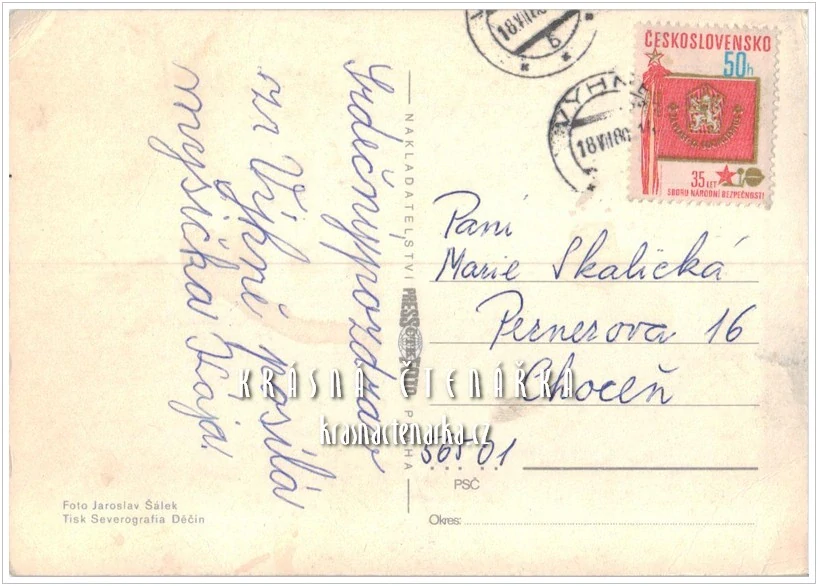 Srdečný pozdrav
ze Výhní posílá
myšička Kája.
NAKLADATELSTVÍ PRESSFOTO PRAHA
18.VII.80
6
VYHN
18.VII.80
ČESKOSLOVENSKO
50h
35 LET
SBORU NÁRODNÍ BEZPEČNOSTI
Paní
Marie Skalická
Pernerova 16
Choceň
565 01
PSČ
Okres:
KRÁSNÁ ČTENÁŘKA
krasnactenarka.cz
Foto Jaroslav Šálek
Tisk Severografia Děčín